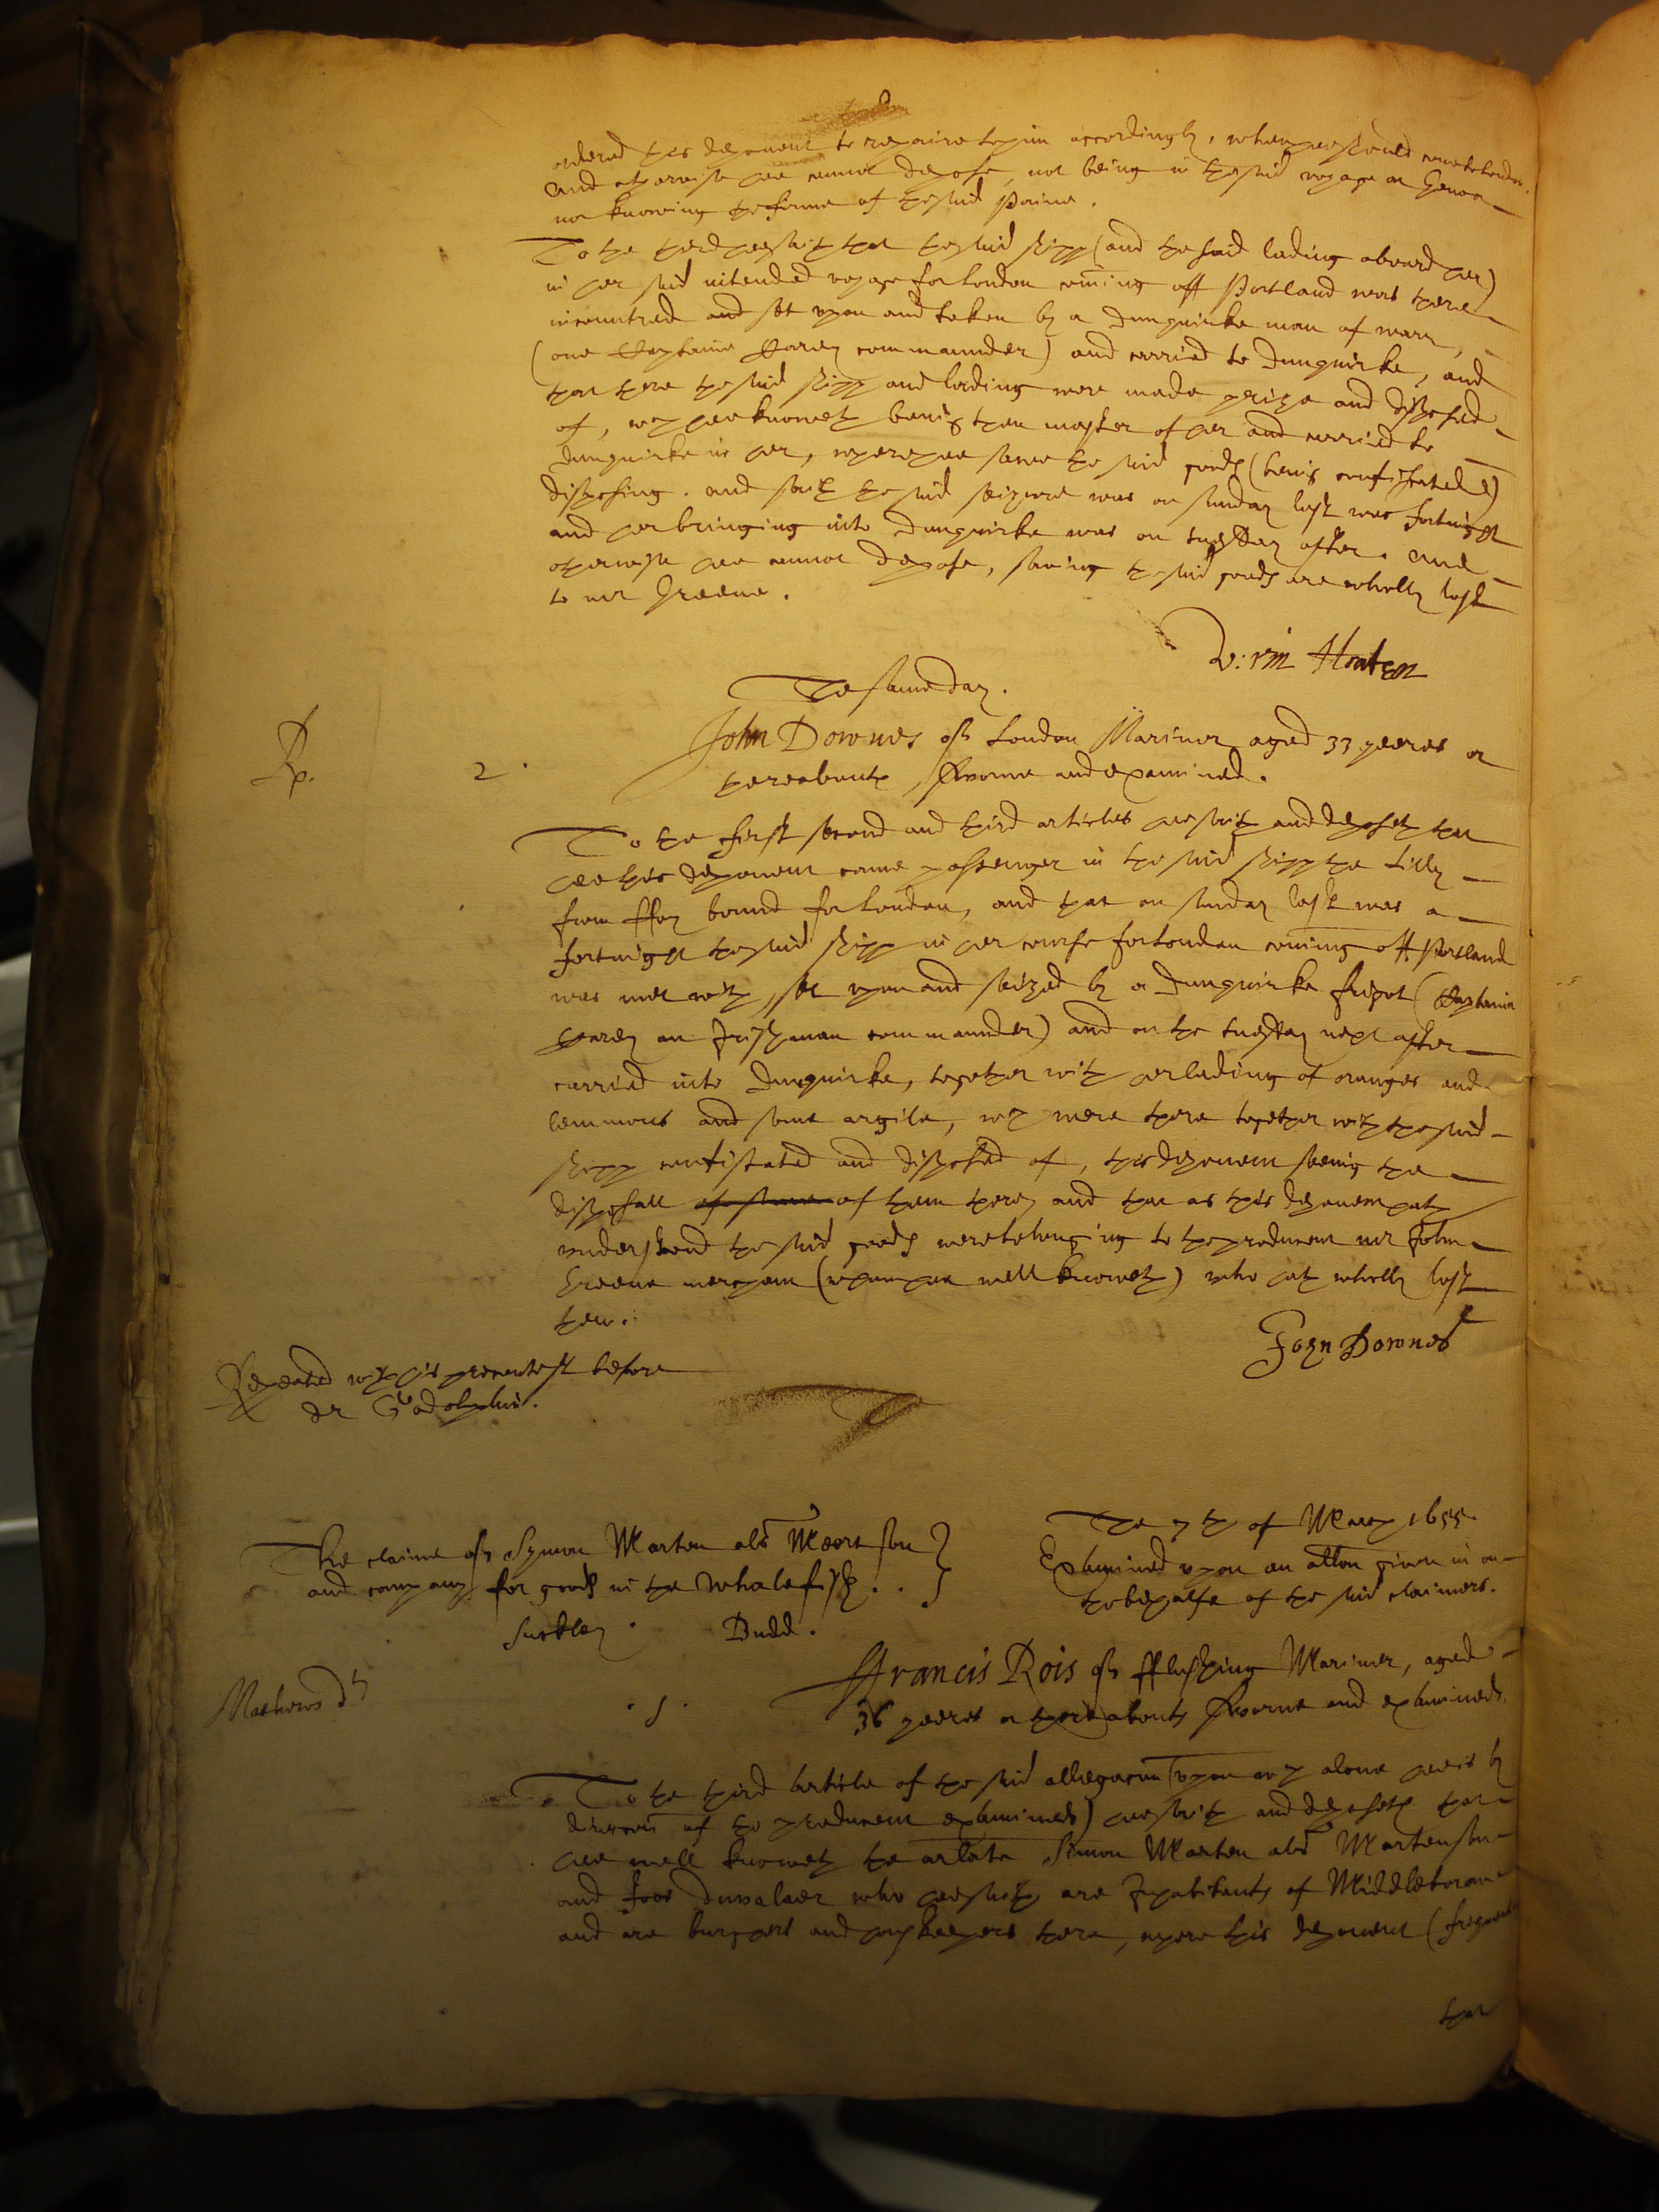 ordered this deponent to repaire to him accordingly, when hee should come to London.
And otherwise hee cannot depose, not being in the said voyage at Genoa
nor knowing the
To the third hee saith that the said shipp (and the said lading aboard her)
in her said intended voyage for London coming off Portland was there
incountred and set upon and taken by a dunquirke man of warr,
(one Captaine commaunder) and carried to dunquirke, and
that there the said shipp and lading were made prize and disposed
of, wch hee knoweth being then master of her and carried to
dunquirke in her, where hee sawe the said goods (being confiscated)
disposing. and saith the said seizure was on sunday last was fortnight
and her bringing into dunquirke was on tuesday after. And
otherwise hee cannot depose, saving the said goods are wholly lost
to mr Greene.
The same day.
Rp. 2.
John Downes of London Mariner aged 33 yeeres or
thereabouts, sworne and examined.
To the first second and third articles hee saith and deposeth that
hee this deponent came passenger in the said shipp the Lilly
from ffoy bound for London, and that on sunday last was a
fortnight the said shipp in her course for London coming off Portland
was met with, set upon and seized by a dunquirke frigot (Captaine
an Irishman commaunder) and on the tuesday next after
carried into dunquirke, together with her lading of oranges and
lemmons and some argile, wch were there together with the said
shipp confiscated and disposed of, this deponent seeing the
disposall of some of them there, and that as this deponent hath
understood the said goods were belonging to the producent mr John
Greene merchant (whom hee well knoweth) who hath wholly lost
them.
John Downes
Repeated with his precontest before
dr Godolphin.
The claime of Symon Marten als Martenson }
and company for goods in the Whalefish. . }
Suckley. Budd.
The 7th of March 1655.
Examined upon an allon given in on
the behalfe of the said claimers.
Mathews dt
.1.
ffrancis Rois of fflushing Mariner, aged
36 yeeres or thereabouts sworne and examined.
To the third article of the said allegacon (upon wch alone hee is by
direccon of the producent examined) hee saith and deposeth that
hee well knoweth the arlate Simon Marten als Martenson
and Joos Duvalaer who hee saith are Inhabitants of Middleborow
and are burghers and howskeepers there, where this deponent (frequents
that